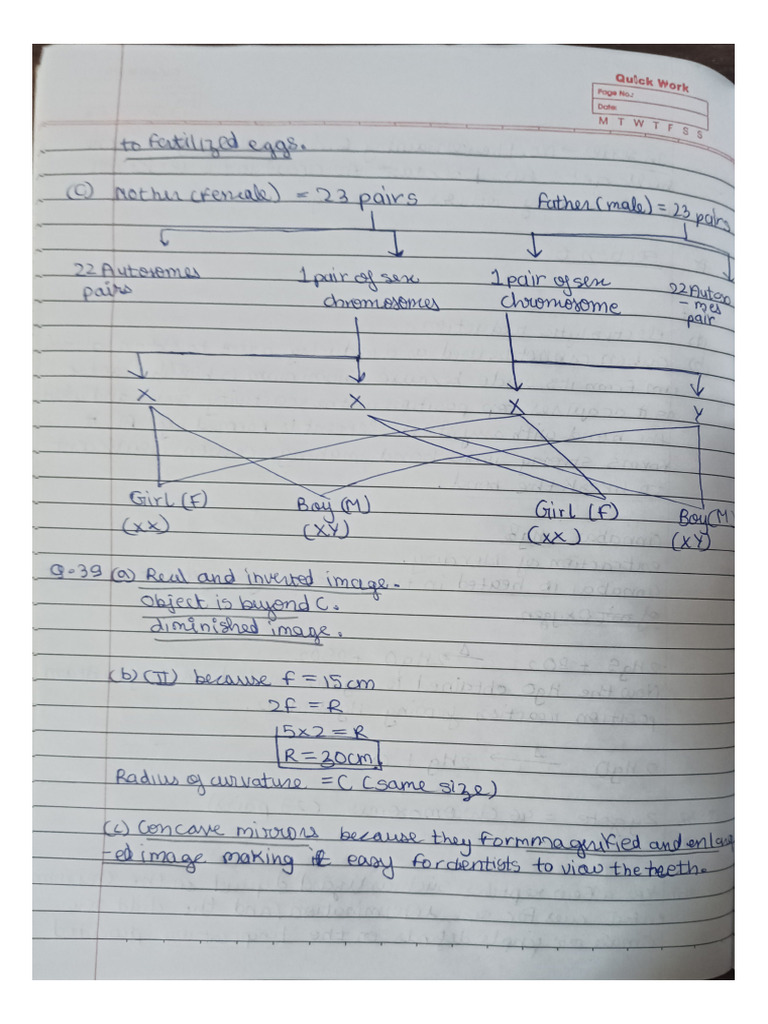 Quick Work
Page No.:
Date:
M T W T F S S
to fatilized eggs.
(C) Mother (female) = 23 pairs Father (male) = 23 pairs
22 Autosomes 1 pair of sex 1 pair of sex 22 Auton
pairs chromosomes chromosome - mes
pair
X X X Y
Girl (F) Boy (M) Girl (F) Boy (M)
(XX) (XY) (XX) (XY)
Q-39 (a) Real and inverted image.
Object is beyond C.
diminished image.
(b) (II) because f = 15 cm
2f = R
15x2 = R
R = 30cm
Radius of curvature = C (same size)
(c) Concave mirrors because they form magnified and enlarg
-ed image making it easy for dentists to view the teeth.